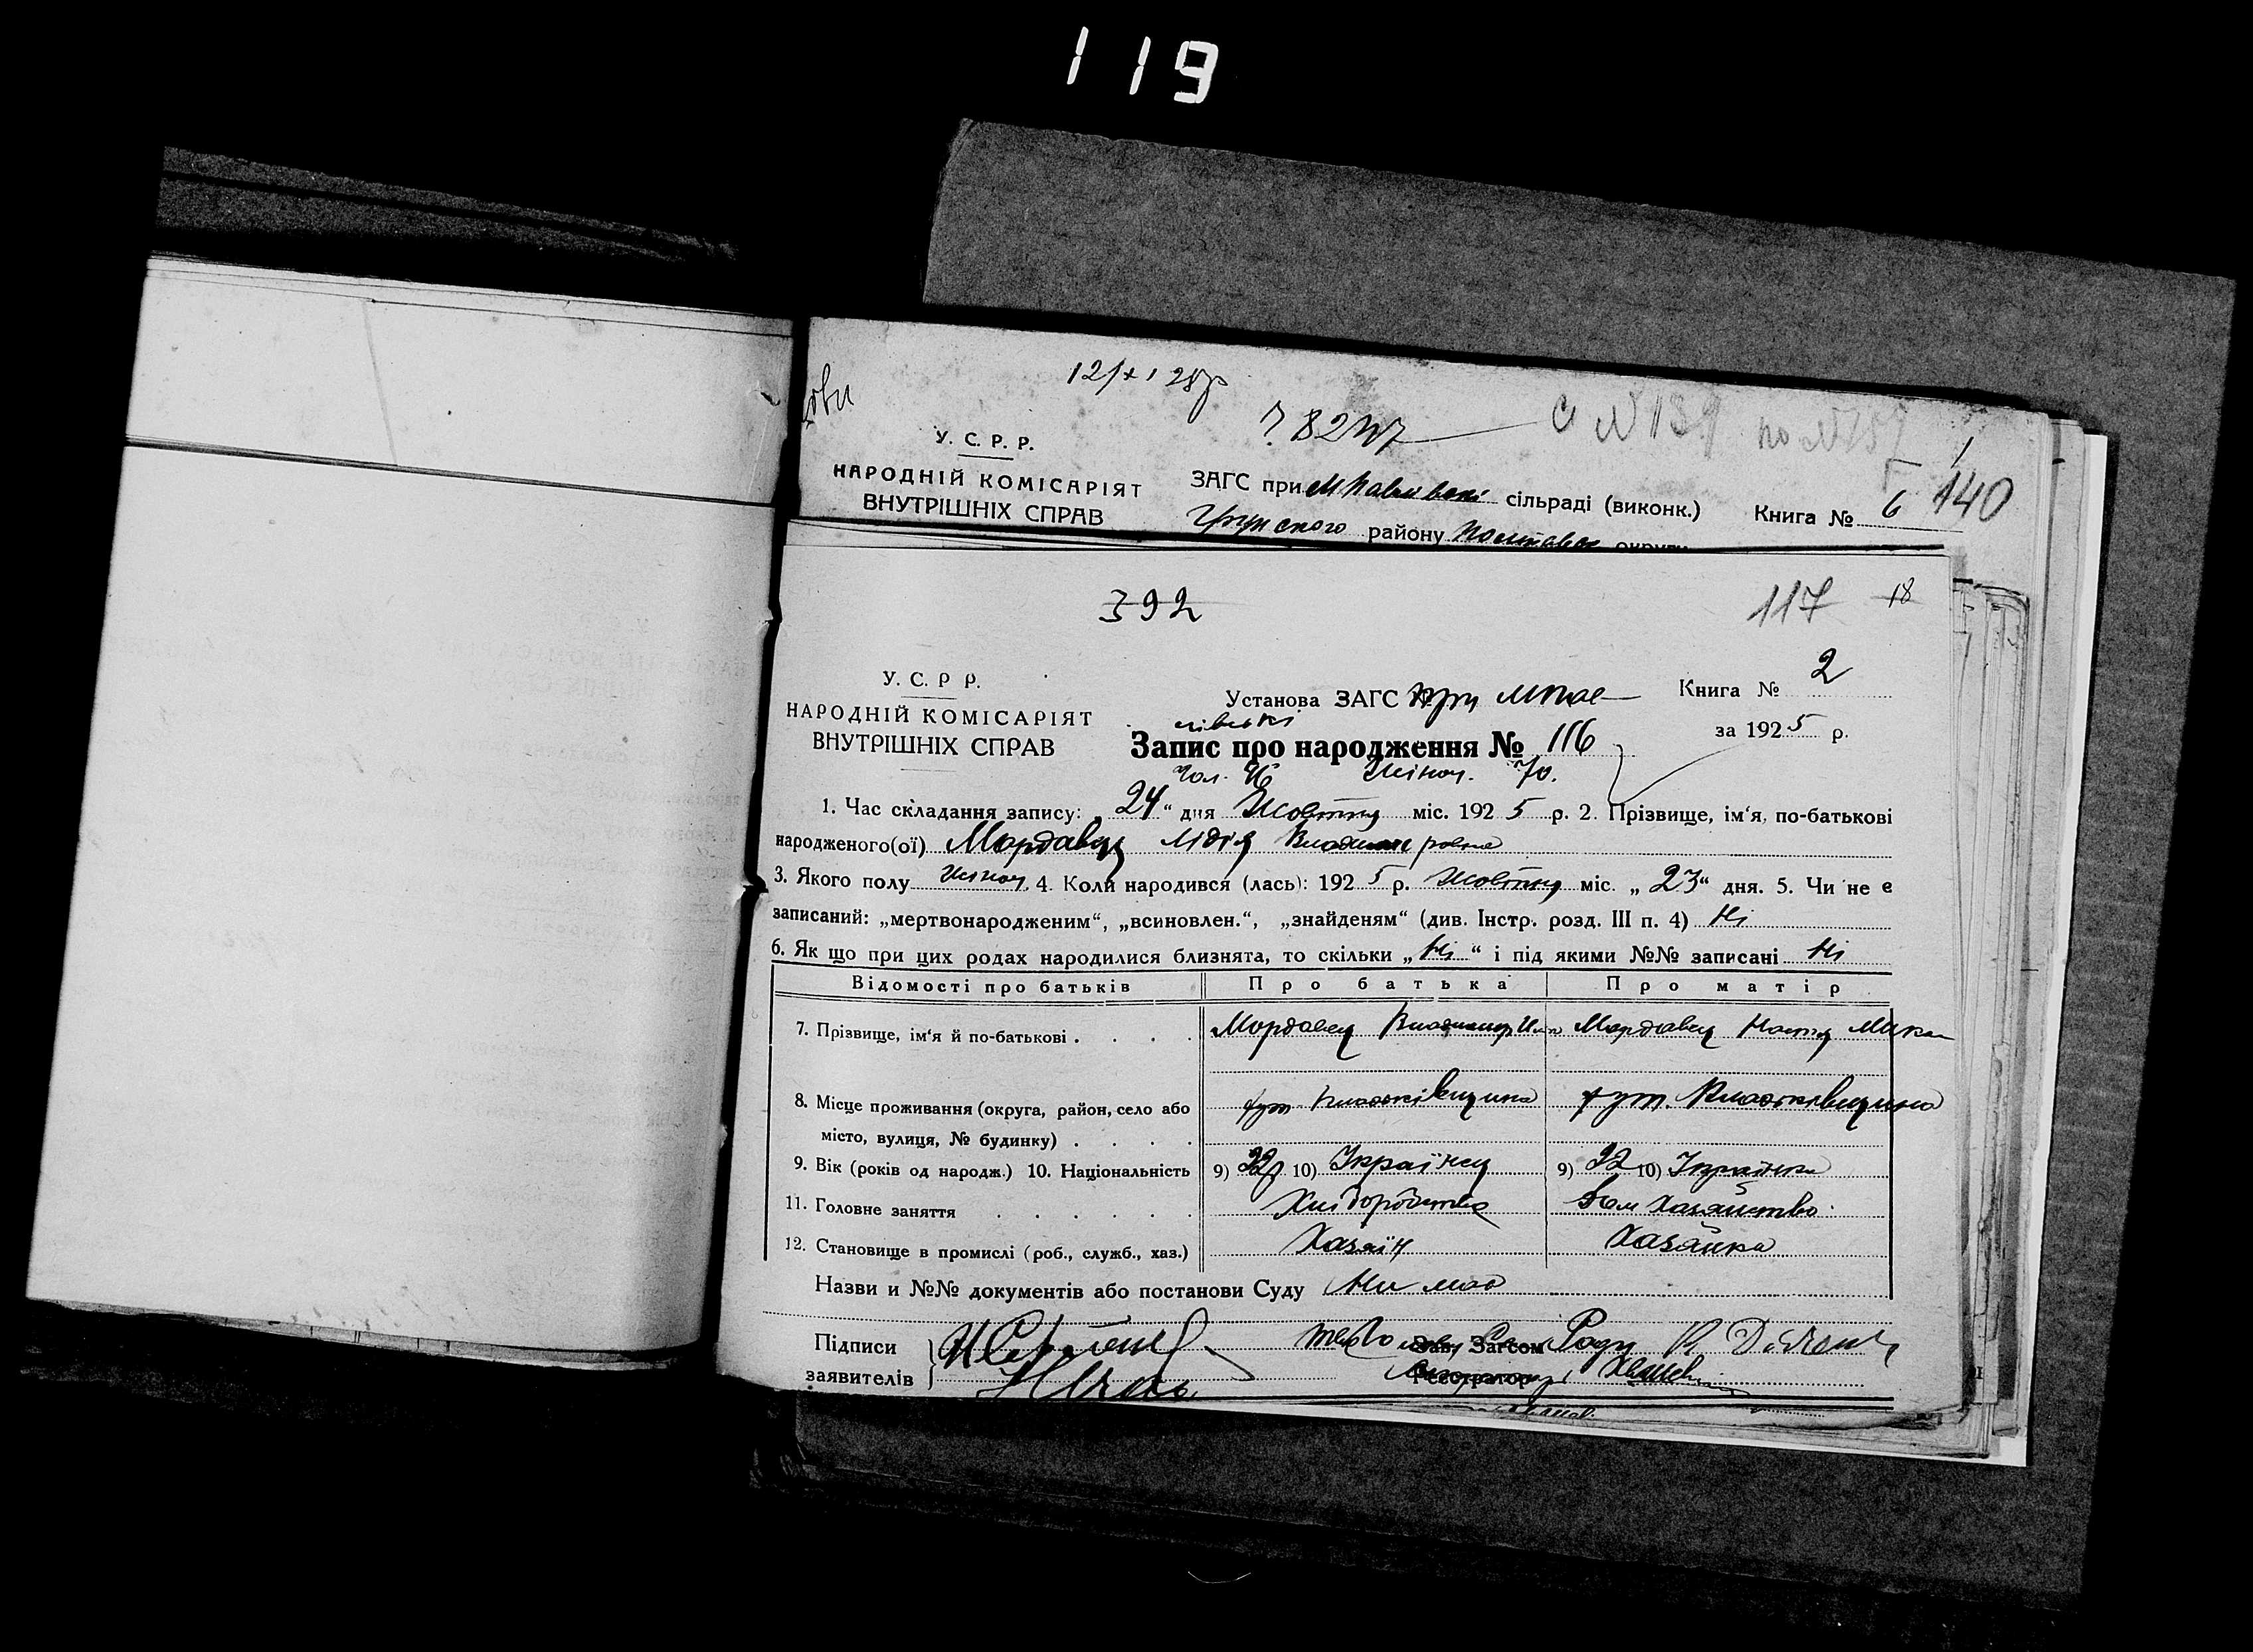 119
12/XI 28р
У. С. Р. Р.
НАРОДНІЙ КОМІСАРІЯТ
ВНУТРІШНІХ СПРАВ
ЗАГС при сільраді (виконк.) Книга № 6 140
району округи
392
117 18
У. С. Р Р.
НАРОДНІЙ КОМІСАРІЯТ
ВНУТРІШНІХ СПРАВ
Установа ЗАГС при Мпав-
лівські
Книга № 2
за 1925 р.
Запис про народження № 116
Чол. Жіноч. 70.
1. Час складання запису: „24“ дня Жовтня міс. 1925 р. 2. Прізвище, ім‘я, по-батькові
народженого(ої) Мордавец Лідія Владимировна
3. Якого полу Жіноч. 4. Коли народився (лась): 1925 р. Жовтня міс. „23“ дня. 5. Чи не є
записаний: „мертвонародженим“, „всиновлен.“, „знайденям“ (див. Інстр. розд. III п. 4) Ні
6. Як що при цих родах народилися близнята, то скільки „Ні“ і під якими №№ записані Ні
Відомості про батьків Про батька Про матір
7. Прізвище, ім‘я й по-батькові . . . . Мордавец Владимир Мордавец Настя
8. Місце проживання (округа, район, село або хут. хут.
місто, вулиця, № будинку) . . . .
9. Вік (років од народж.) 10. Національність 9) 22 10) Українец 9) 22 10) Українка
11. Головне заняття . . . . . . Хліборобство Дом Хазяйство
12. Становище в промислі (роб., служб., хаз.) Хазяїн Хазяйка
Назви и №№ документів або постанови Суду Ни має
Підписи Зав. Загсом
заявителів Реєстратор